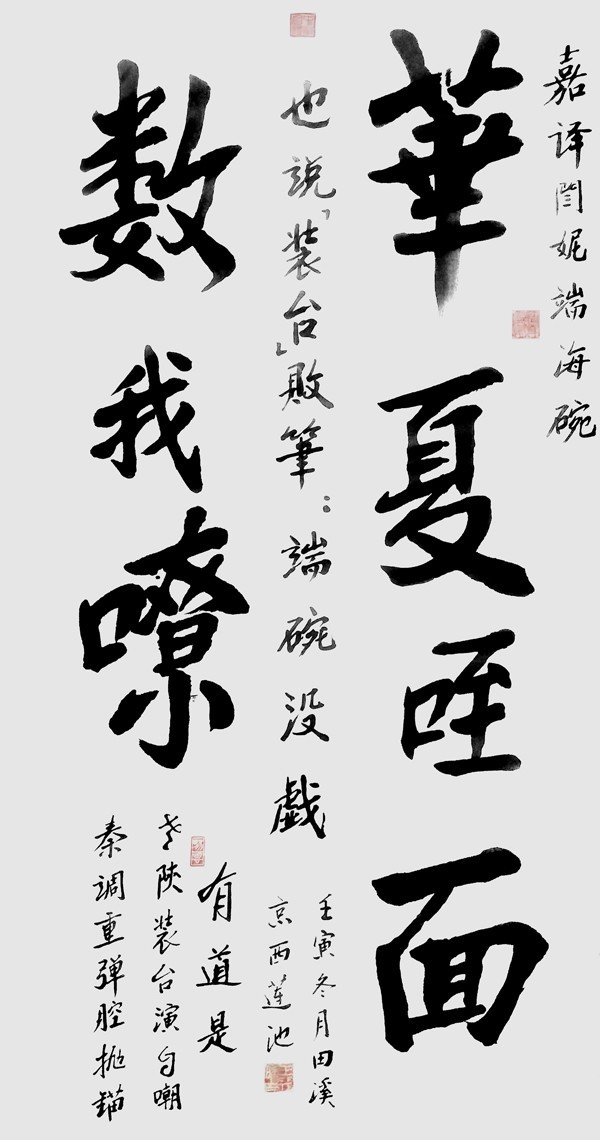 嘉译闫妮端海碗
華夏咥面
也説「装台」敗筆：端碗没戲
數我嘹
有道是
老陕装台演自嘲
秦调重弹腔抛锚
壬寅冬月田溪
京西莲池